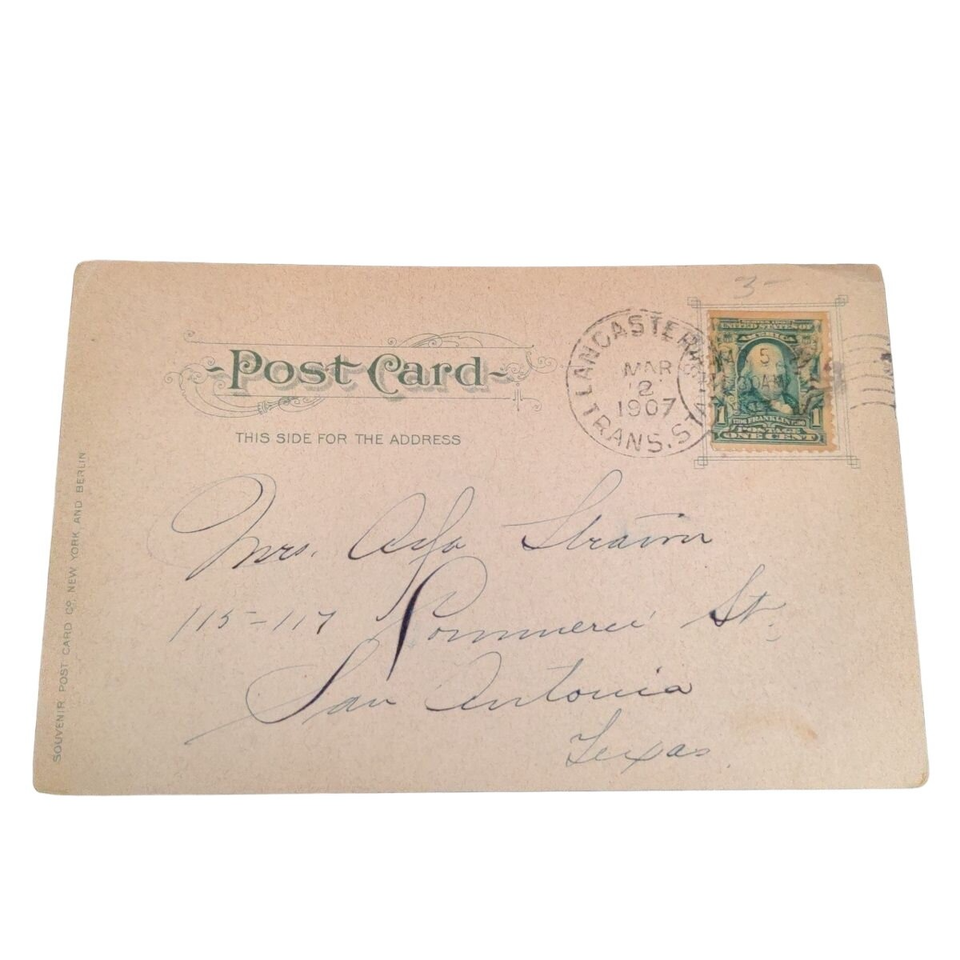 3-
Post Card
THIS SIDE FOR THE ADDRESS
LANCASTER
MAR
2
1907
TRANS. STA.
5
30AM
UNITED STATES OF
AMERICA
1 FRANKLIN 1
POSTAGE
ONE CENT
Mrs. Asa Strawn
115-117 Commerce St.
San Antonio
Texas.
SOUVENIR POST CARD CO. NEW YORK AND BERLIN